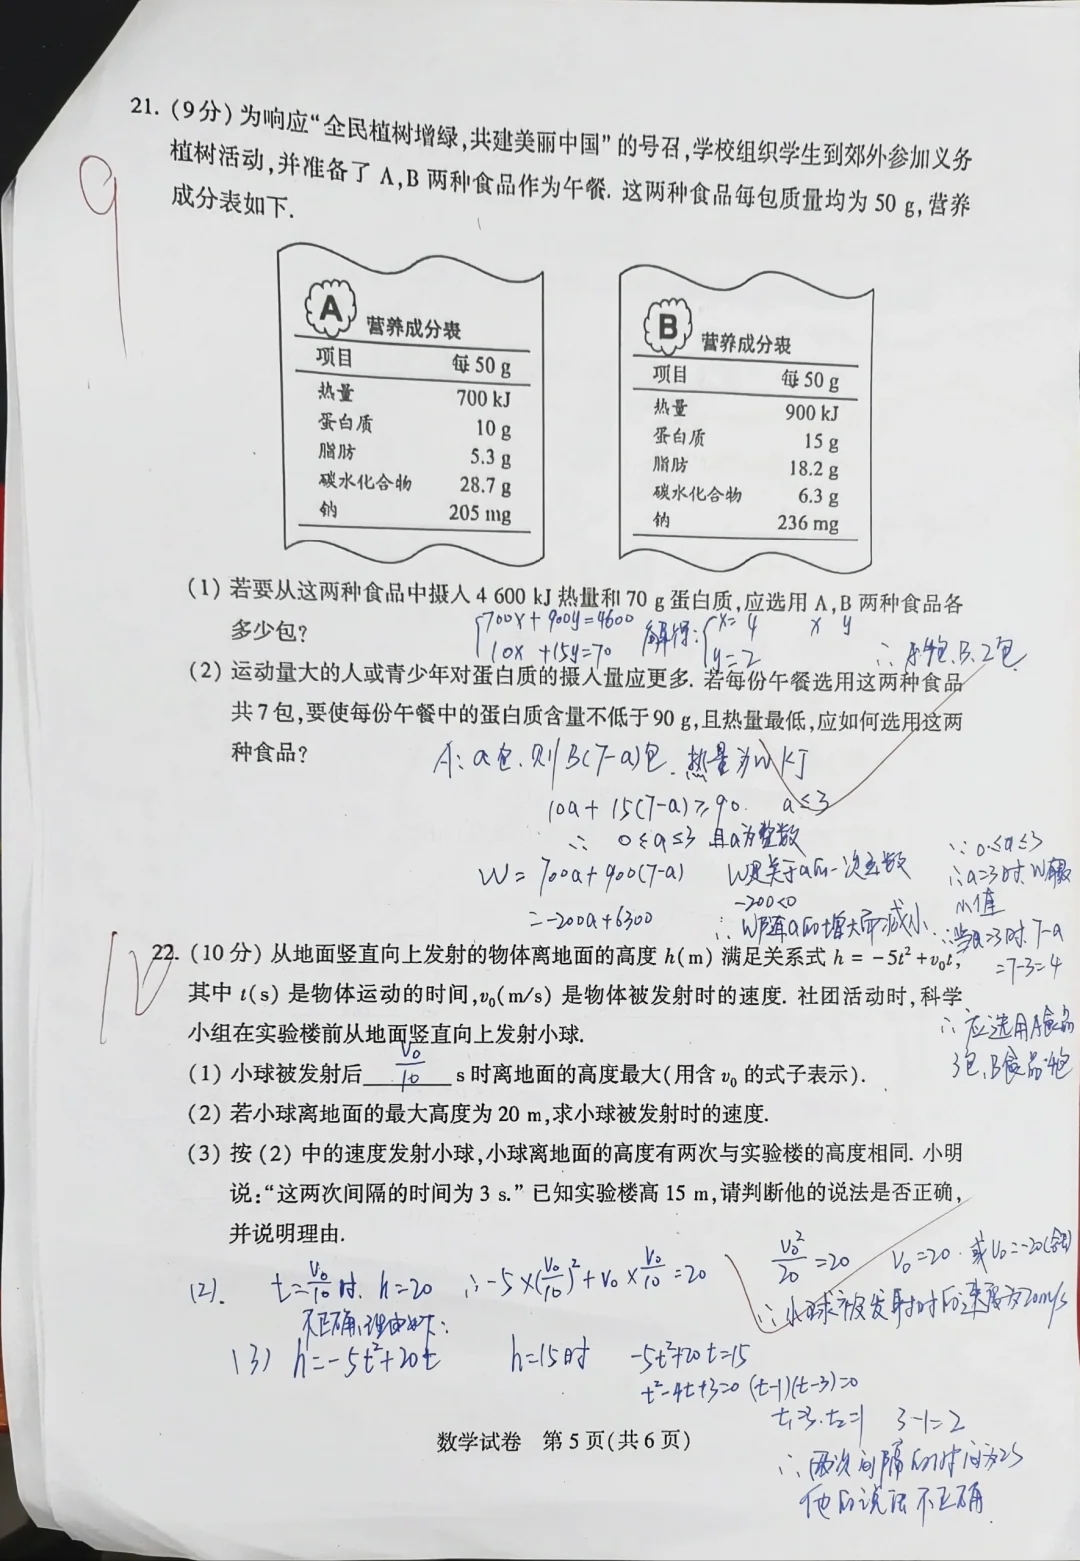 9
21. (9分) 为响应“全民植树增绿,共建美丽中国”的号召,学校组织学生到郊外参加义务
植树活动,并准备了 A,B 两种食品作为午餐. 这两种食品每包质量均为 50 g,营养
成分表如下.
A 营养成分表
项目 每 50 g
热量 700 kJ
蛋白质 10 g
脂肪 5.3 g
碳水化合物 28.7 g
钠 205 mg
B 营养成分表
项目 每 50 g
热量 900 kJ
蛋白质 15 g
脂肪 18.2 g
碳水化合物 6.3 g
钠 236 mg
(1) 若要从这两种食品中摄入 4 600 kJ 热量和 70 g 蛋白质,应选用 A,B 两种食品各
多少包?
x y
700x+900y=4600
10x+15y=70
解得: x=4
y=2
(2) 运动量大的人或青少年对蛋白质的摄入量应更多. 若每份午餐选用这两种食品
共 7 包,要使每份午餐中的蛋白质含量不低于 90 g,且热量最低,应如何选用这两
种食品?
A: a包.则B(7-a)包.热量为w kJ
10a+15(7-a)≥90. a≤3
∴ 0≤a≤3 且a为整数
W=700a+900(7-a) W是关于a的一次函数
=-200a+6300 -200<0
∴ W随a的增大而减小.
∵0≤a≤3
∴a=3时.W有最
小值
∴当a=3时.7-a
=7-3=4
∴应选用A食品
3包,B食品4包
10
22. (10 分) 从地面竖直向上发射的物体离地面的高度 h(m) 满足关系式 h = -5t²+v₀t,
其中 t(s) 是物体运动的时间,v₀(m/s) 是物体被发射时的速度. 社团活动时,科学
小组在实验楼前从地面竖直向上发射小球.
(1) 小球被发射后 v₀/10 s 时离地面的高度最大(用含 v₀ 的式子表示).
(2) 若小球离地面的最大高度为 20 m,求小球被发射时的速度.
(3) 按 (2) 中的速度发射小球,小球离地面的高度有两次与实验楼的高度相同. 小明
说:“这两次间隔的时间为 3 s.”已知实验楼高 15 m,请判断他的说法是否正确,
并说明理由.
(2). t=v₀/10时. h=20 ∴-5×(v₀/10)²+v₀×v₀/10=20
v₀²/20=20 v₀=20.或v₀=-20(舍去)
∴小球被发射时的速度为20m/s
不正确,理由如下:
(3) h=-5t²+20t h=15时 -5t²+20t=15
t²-4t+3=0 (t-1)(t-3)=0
t₁=3.t₂=1 3-1=2
∴两次间隔的时间为2s
他的说法不正确
数学试卷 第 5 页(共 6 页)